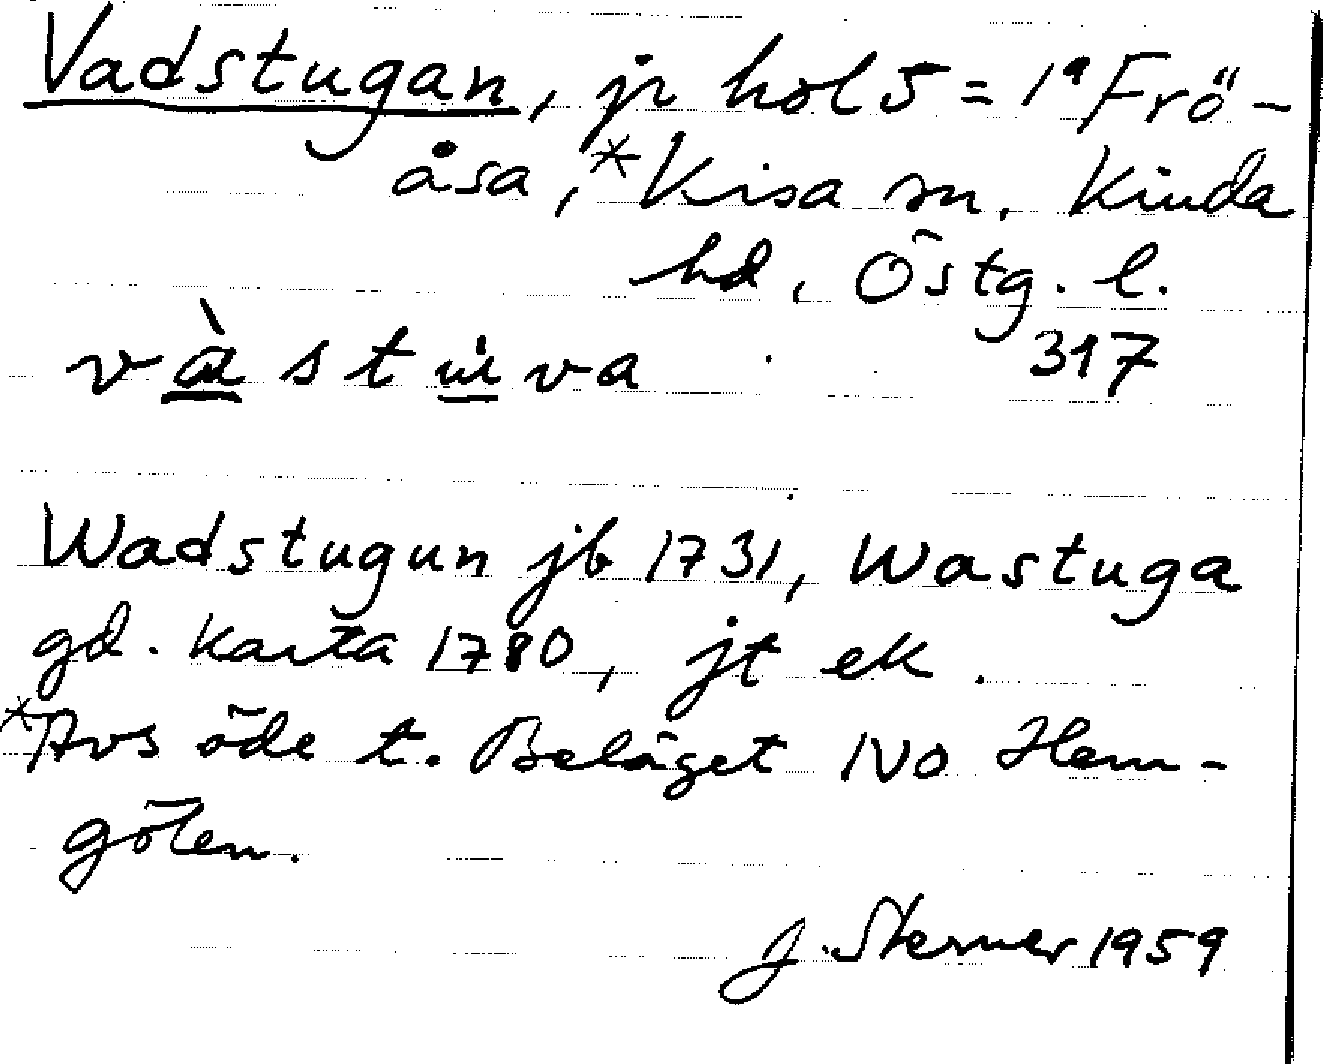 Vadstugan, jr hol 5 = 1ª Frö-
åsa, *Kisa sn, Kinda
hd, Östg. l.
317
Wadstugun jb 1731, Wastuga
gd. karta 1780, jt ek.
*Avs öde t. Beläget NO Hem-
gölen.
J. Sterner 1959